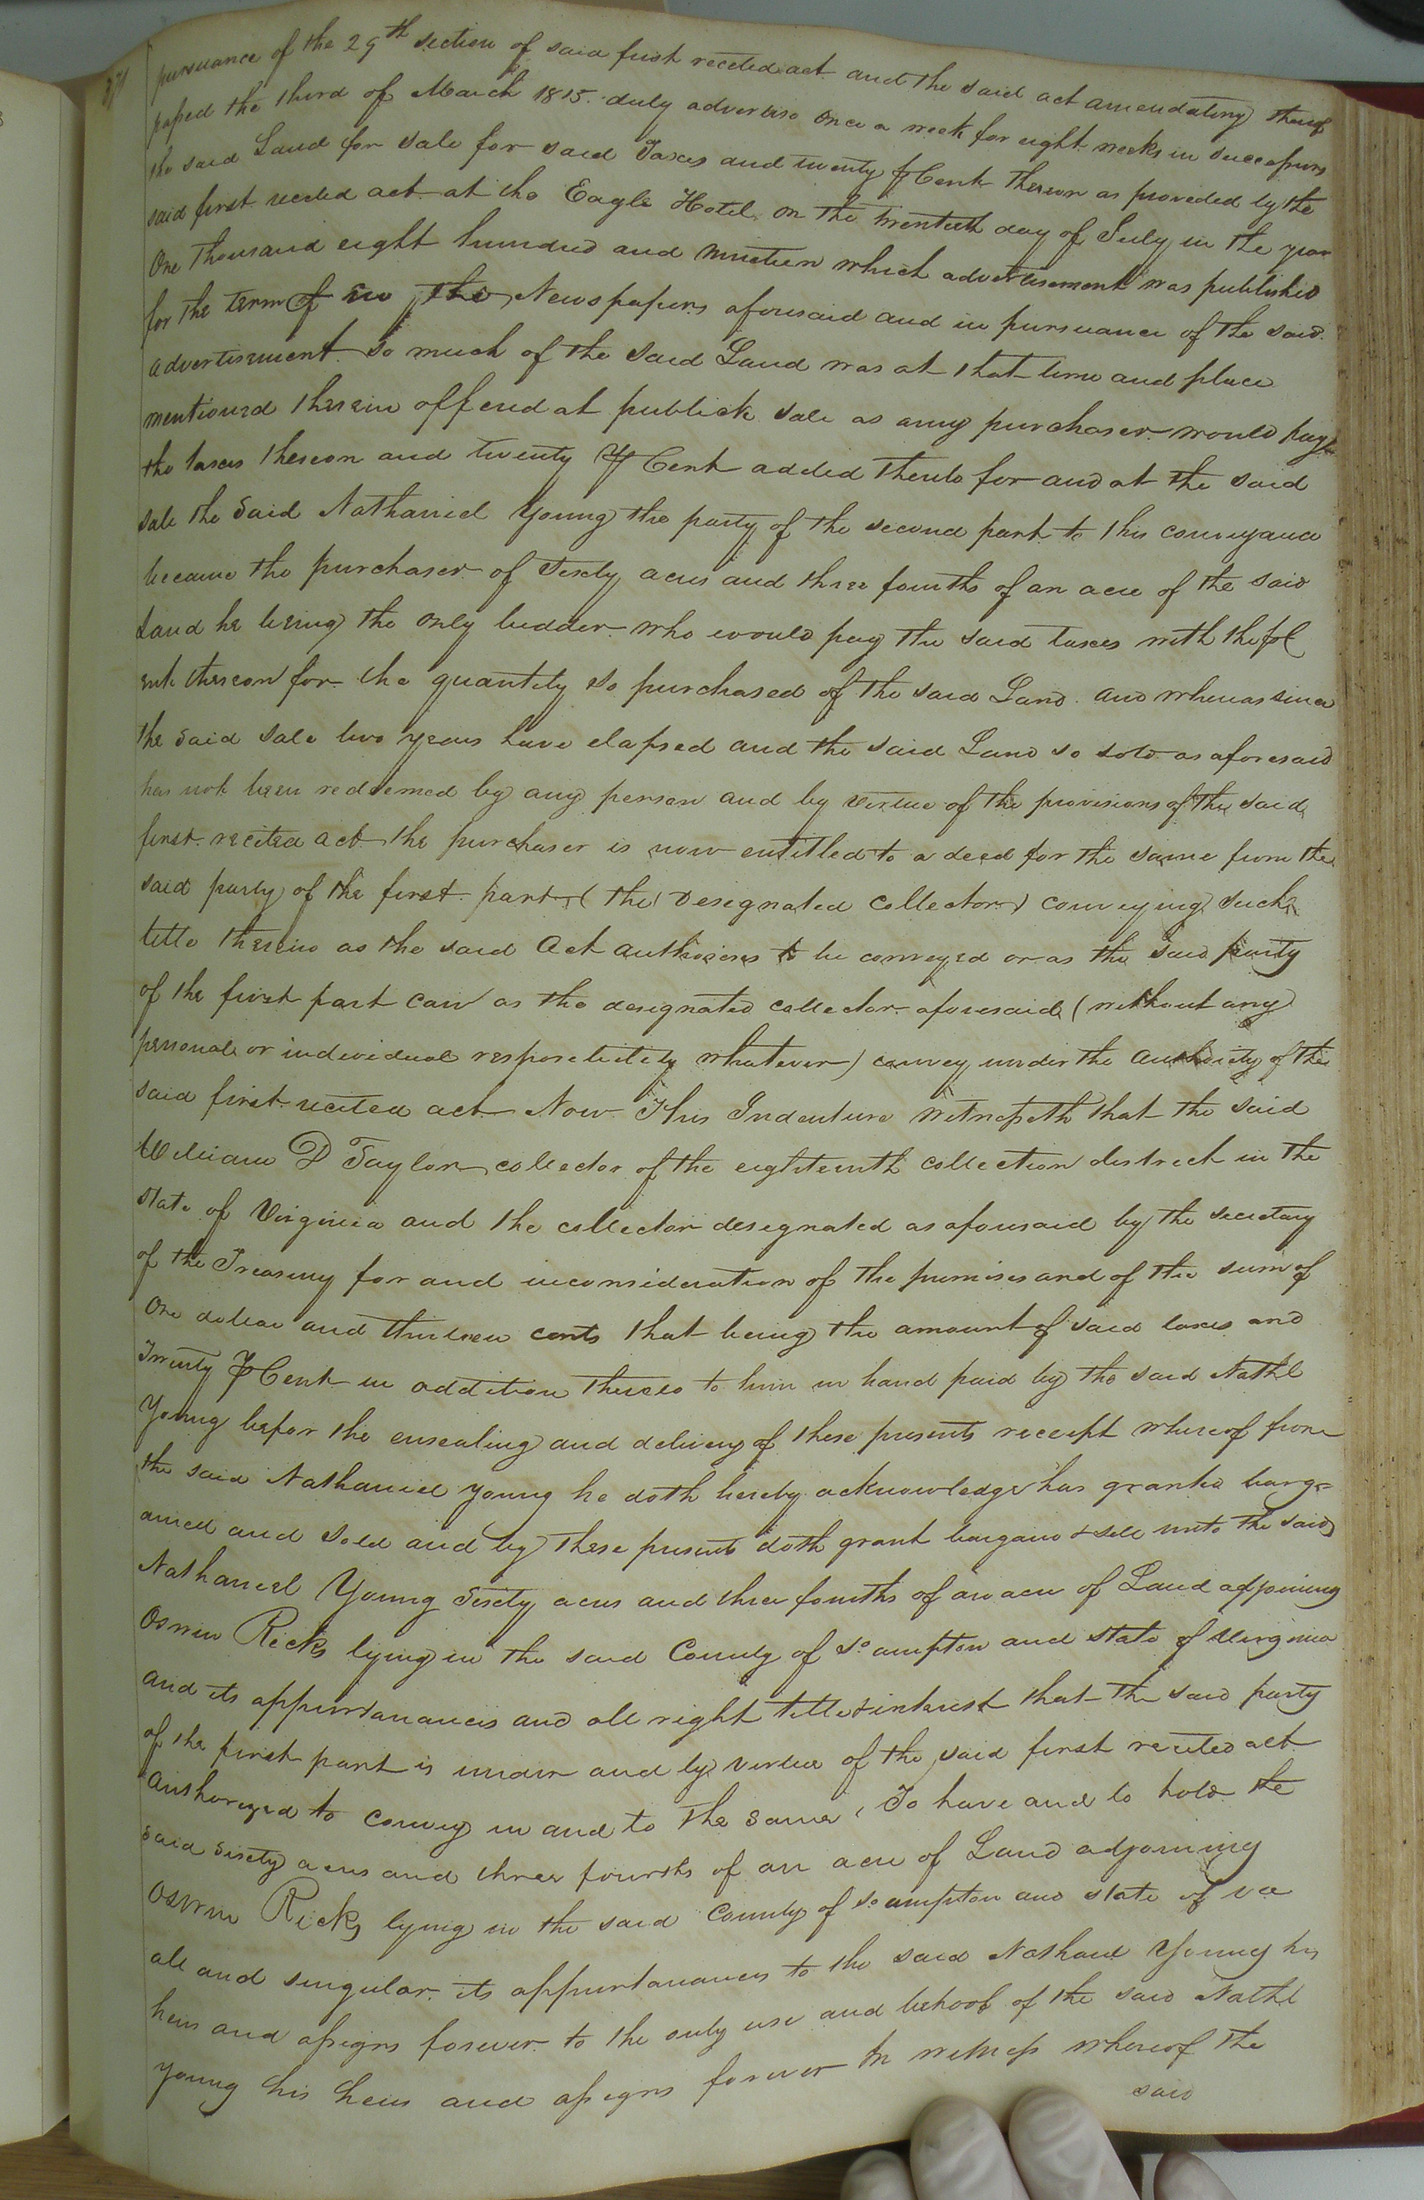 pursuance of the 29th section of said first recited act and the said act amendatory thereof
passed the third of March 1815. duly advertise once a week for eight weeks in successions
the said Land for sale for said Taxes and twenty pr Cent thereon as provided by the
said first recited act at the Eagle Hotel on the twentieth day of July in the year
One thousand eight hundred and nineteen which advertisement was published
for the term of in the Newspapers aforesaid and in pursuance of the said
advertisment so much of the said Land was at that time and place
mentioned therein offered at publick sale as any purchaser would pay
the taxes thereon and twenty pr Cent added thereto for and at the said
sale the said Nathaniel Young the party of the second part to this conveyance
became the purchaser of sixty acres and three fourths of an acre of the said
Land he being the only bidder who would pay the said taxes with the pr C
ent thereon for the quantity so purchased of the said Land. and whereas since
the said sale two years have elapsed and the said Land so sold as aforesaid
has not been redeemed by any person and by virtue of the provisions of the said
first recited act the purchaser is now entitled to a deed for the same from the
said party of the first part (the designated collector) conveying such
title therein as the said Act authorises to be conveyed or as the said party
of the first part can as the designated collector aforesaid (without any
personale or individual responsibility whatever) convey under the authority of the
said first recited act Now This Indenture Witnesseth that the said
William D Taylor collector of the eighteenth collection district in the
state of Virginia and the collector designated as aforesaid by the secretary
of the Treasury for and inconsideration of the premises and of the sum of
One dollar and thirteen cents that being the amount of said taxes and
Twenty pr Cent in addition thereto to him in hand paid by the said Nathl
Young befor the ensealing and delivery of these presents receipt whereof from
the said Nathaniel Young he doth hereby acknowledge has granted barg-
ained and sold and by these presents doth grant bargain & sell unto the said
Nathaniel Young sixty acres and three fourths of an acre of Land adjoining
Oswin Ricks lying in the said County of So ampton and state of Virginia
and its appurtanances and all right title & interest that the said party
of the first part is under and by virtue of the said first recited act
authorized to convey in and to the same, To have and to hold the
said sixty acres and three fourths of an acre of Land adjoining
Oswin Ricks lying in the said County of So ampton and state of va
all and singular its appurtanances to the said Nathaniel Young his
heirs and assigns forever to the only use and behoof of the said Nathl
Young his heirs and assigns forever In witness whereof the
said